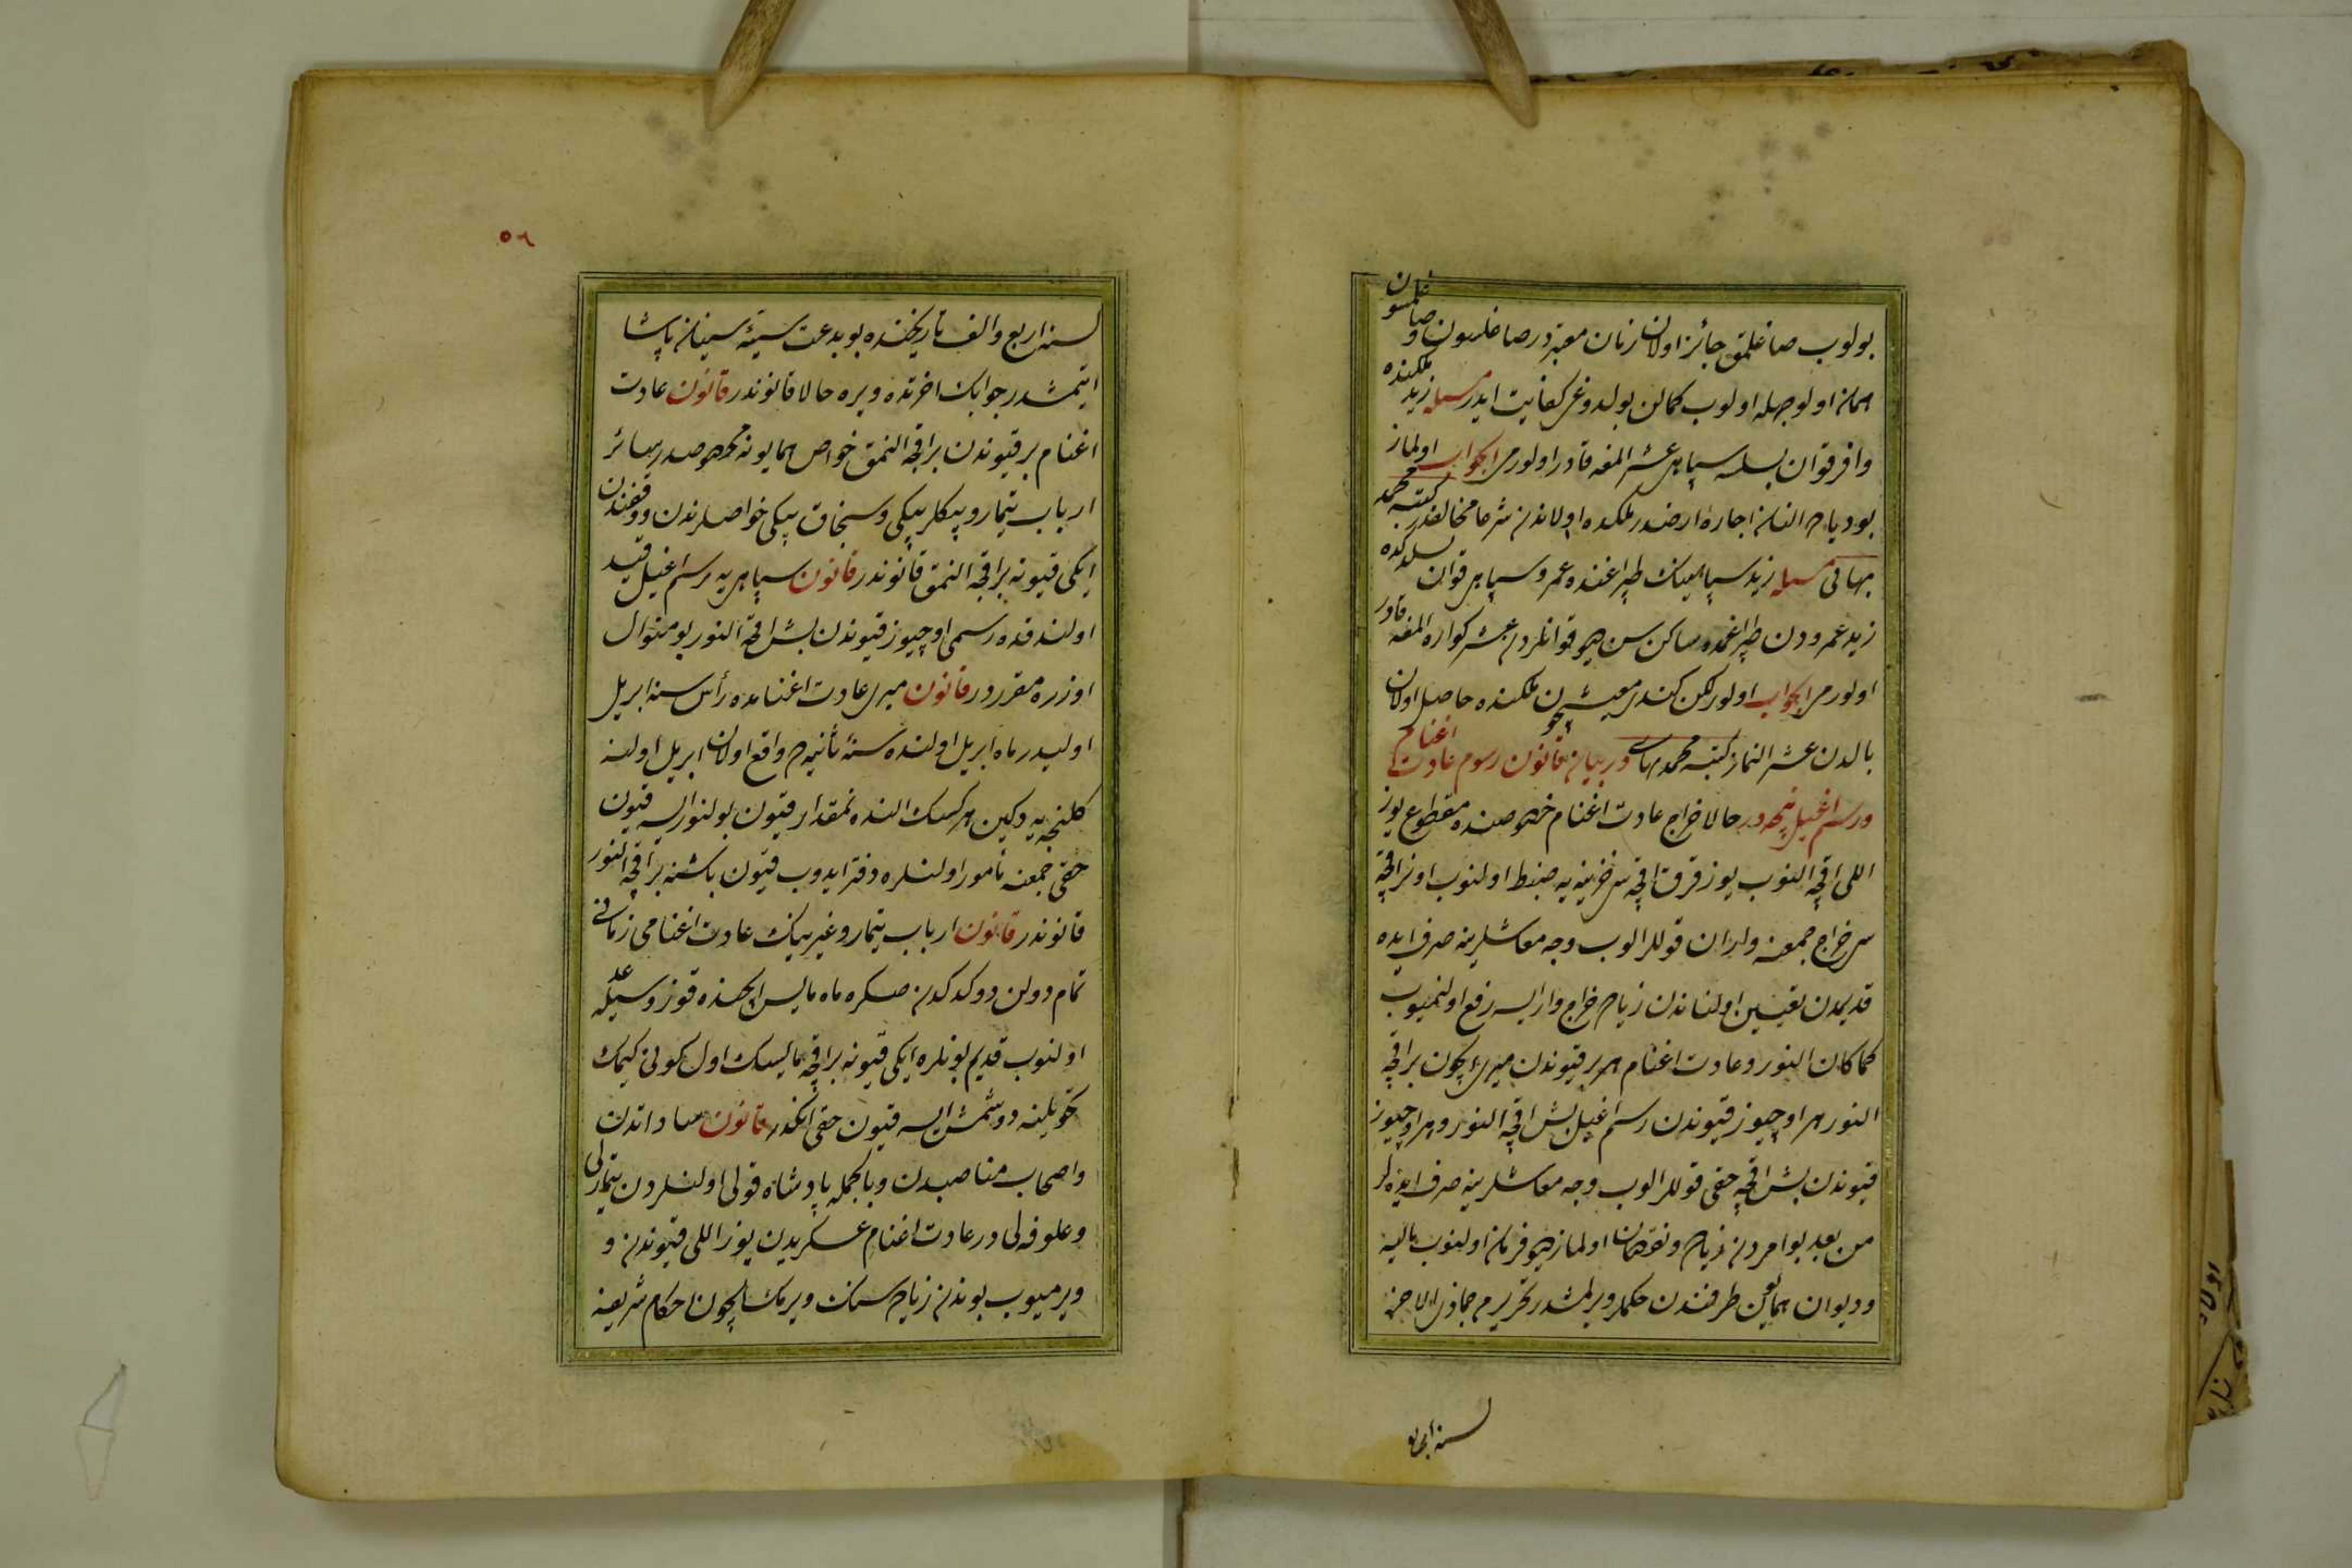 بولوب صاغلمق جائز اولان زمان معتبردر صاغلسون و صاغلمسون
همان اول وجهله اولوب كمالن بولدوغی كفایت ایدر مسئله زید ملكنده
وافر قوان بسلسه سپاهی عشر المغه قادر اولورمی الجواب اولماز
بودیارده النان اجارۀ ارضدر ملكده اولاندن شرعا مخالفدر كتبه محمد
بهائی مسئله زید سپاهینك طپراغنده عمرو سپاهی قوان بسلدكده
زید عمرودن طپراغمده ساكن سن دیو قوانلردن عشر كواره المغه قادر
اولورمی الجواب اولور لكن كندی معیشتیچون ملكنده حاصل اولان
بالدن عشر النماز كتبه محمد بهائی در بیان قانون رسوم عادت اغنام
ورسم اغیل نیجه در حالا خراج عادت اغنام خصوصنده مقطوع یوز
اللی اقچه النوب یوز قرق اقچه سی خزینه یه ضبط اولنوب اون اقچه
سی خراج جمعنه واران قوللر الوب وجه معاشلرینه صرف ایده
قدیمدن تعیین اولناندن زیاده خراج وار ایسه رفع اولنمیوب
كما كان النور وعادت اغنام هر بر قیوندن میری ایچون بر اقچه
النور هر اوچیوز قیوندن رسم اغیل بش اقچه النور وهر اوچیوز
قیوندن بش اقچه حقی قوللر الوب وجه معاشلرینه صرف ایده لر
من بعد بو امردن زیاده ونقصان اولماز دیو فرمان اولنوب مالیه
ودیوان همایون طرفندن حكملر ویرلمشدر تحریرم جماذی الاخره
لسنه اربع
۵۶
لسنه اربع والف تاریخنده بو بدعت سیئه سینان پاشا
ایتمشدر جوابك اخرتده ویره حالا قانوندر قانون عادت
اغنام بر قیوندن بر اقچه النمق خواص همایونه مخصوصدر سائر
ارباب تیمار وبیكلربیكی وسنجاق بیكی خواصلرندن ووقفندن
ایكی قیونه بر اقچه النمق قانوندر قانون سپاهی یه رسم اغیل قید
اولندقده رسمی اوچیوز قیوندن بش اقچه النور بو منوال
اوزره مقرردر قانون میری عادت اغنامده رأس سنه ابریل
اولیدر ماه ابریل اولنده سنۀ ثانیه ده واقع اولان ابریل اولنه
كلنجه یه دكین هر كسك النده نمقدار قیون بولنور ایسه قیون
حقی جمعنه مأمور اولنلره دفتر ایدوب قیون باشنه بر اقچه النور
قانوندر قانون ارباب تیمار وغیرینك عادت اغنامی زمانی
تمام دولن دوكدكدن صكره ماه مایس ایچنده قوزوسیله عد
اولنوب قدیم بونلره ایكی قیونه بر اقچه مایسك اول كونی كیمك
تحویلنه دوشمش ایسه قیون حقی انكدر قانون ساداتدن
واصحاب مناصبدن وبالجمله پادشاه قولی اولنلردن تیمارلی
وعلوفه لی در عادت اغنام عسكریدن یوز اللی قیوندن و
ویرمیوب بوندن زیاده سنك ویرمك ایچون احكام شریفه